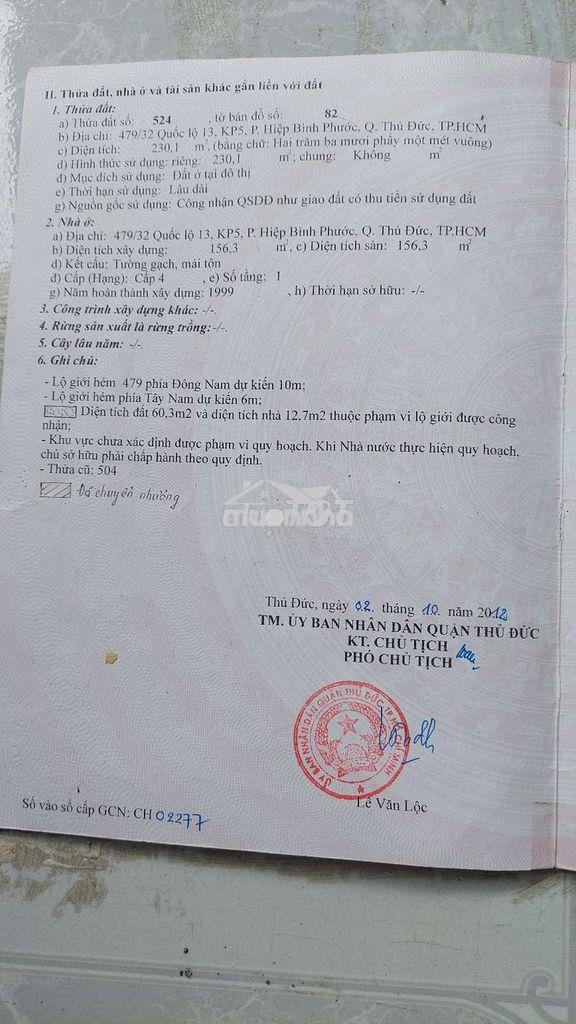 II. Thửa đất, nhà ở và tài sản khác gắn liền với đất
1. Thửa đất:
a) Thửa đất số: 524 , tờ bản đồ số: 82
b) Địa chỉ: 479/32 Quốc lộ 13, KP5, P. Hiệp Bình Phước, Q. Thủ Đức, TP.HCM
c) Diện tích: 230,1 m², (bằng chữ: Hai trăm ba mươi phẩy một mét vuông)
d) Hình thức sử dụng: riêng: 230,1 m²; chung: Không m²
đ) Mục đích sử dụng: Đất ở tại đô thị
e) Thời hạn sử dụng: Lâu dài
g) Nguồn gốc sử dụng: Công nhận QSDĐ như giao đất có thu tiền sử dụng đất
2. Nhà ở:
a) Địa chỉ: 479/32 Quốc lộ 13, KP5, P. Hiệp Bình Phước, Q. Thủ Đức, TP.HCM
b) Diện tích xây dựng: 156,3 m², c) Diện tích sàn: 156,3 m²
d) Kết cấu: Tường gạch, mái tôn
đ) Cấp (Hạng): Cấp 4 , e) Số tầng: 1
g) Năm hoàn thành xây dựng: 1999 , h) Thời hạn sở hữu: -/-
3. Công trình xây dựng khác: -/-.
4. Rừng sản xuất là rừng trồng: -/-.
5. Cây lâu năm: -/-.
6. Ghi chú:
- Lộ giới hẻm 479 phía Đông Nam dự kiến 10m;
- Lộ giới hẻm phía Tây Nam dự kiến 6m;
Diện tích đất 60,3m2 và diện tích nhà 12.7m2 thuộc phạm vi lộ giới được công
nhận;
- Khu vực chưa xác định được phạm vi quy hoạch. Khi Nhà nước thực hiện quy hoạch,
chủ sở hữu phải chấp hành theo quy định.
- Thửa cũ: 504
Đã chuyển nhượng
muonnha
Thủ Đức, ngày 02 tháng 10 năm 2012
TM. ỦY BAN NHÂN DÂN QUẬN THỦ ĐỨC
KT. CHỦ TỊCH
PHÓ CHỦ TỊCH
ỦY BAN NHÂN DÂN QUẬN THỦ ĐỨC TP HỒ CHÍ MINH
Lê Văn Lộc
Số vào sổ cấp GCN: CH 02277